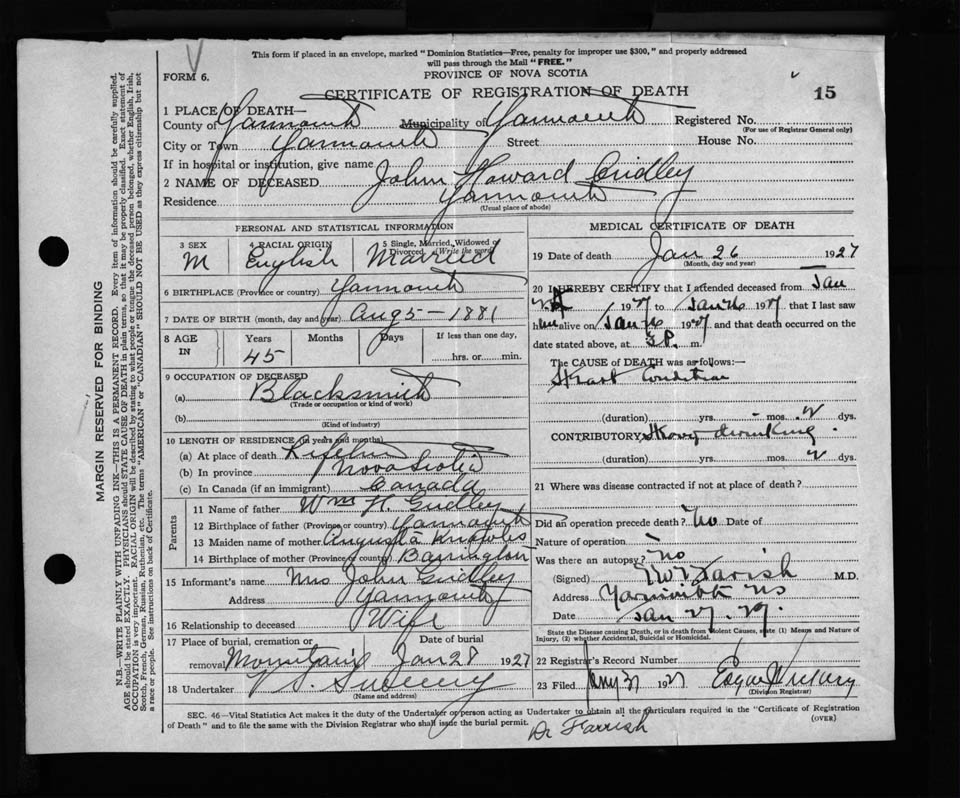 This form if placed in an envelope, marked "Dominion Statistics—Free, penalty for improper use $300," and properly addressed
will pass through the Mail "FREE."
FORM 6.
PROVINCE OF NOVA SCOTIA
CERTIFICATE OF REGISTRATION OF DEATH
15
1 PLACE OF DEATH—
County of Yarmouth Municipality of Yarmouth Registered No.
(For use of Registrar General only)
City or Town Yarmouth Street House No.
If in hospital or institution, give name
2 NAME OF DECEASED John Howard Gridley
Residence Yarmouth
(Usual place of abode)
PERSONAL AND STATISTICAL INFORMATION
3 SEX 4 RACIAL ORIGIN 5 Single, Married, Widowed or Divorced (Write the word)
M English Married
6 BIRTHPLACE (Province or country) Yarmouth
7 DATE OF BIRTH (month, day and year) Aug 5 – 1881
8 AGE IN Years Months Days If less than one day,
45 hrs. or min.
9 OCCUPATION OF DECEASED
(a) Blacksmith
(Trade or occupation or kind of work)
(b)
(Kind of industry)
10 LENGTH OF RESIDENCE (in years and months)
(a) At place of death Lifetime
(b) In province Nova Scotia
(c) In Canada (if an immigrant) Canada
Parents
11 Name of father Wm H. Gridley
12 Birthplace of father (Province or country) Yarmouth
13 Maiden name of mother Augusta
14 Birthplace of mother (Province or country) Barrington
15 Informant's name Mrs John Gridley
Address Yarmouth
16 Relationship to deceased Wife
17 Place of burial, cremation or removal Date of burial
Mountain Jan 28 1927
18 Undertaker V. S. Sweeny
(Name and address)
MEDICAL CERTIFICATE OF DEATH
19 Date of death Jan 26 1927
(Month, day and year)
20 I HEREBY CERTIFY that I attended deceased from Jan
1927 to Jan 26 1927, that I last saw
him alive on Jan 26 1927 and that death occurred on the
date stated above, at 3 P. m.
The CAUSE of DEATH was as follows:—
Heart Condition
(duration) yrs. mos. dys.
CONTRIBUTORY drinking
(duration) yrs. mos. dys.
21 Where was disease contracted if not at place of death?
Did an operation precede death? No Date of
Nature of operation
Was there an autopsy? no
(Signed) Farish M.D.
Address Yarmouth NS
Date Jan 27. 27.
State the Disease causing Death, or in death from Violent Causes, state (1) Means and Nature of
Injury, (2) whether Accidental, Suicidal or Homicidal.
22 Registrar's Record Number
23 Filed 1927 Edgar
(Division Registrar)
SEC. 46—Vital Statistics Act makes it the duty of the Undertaker or person acting as Undertaker to obtain all the particulars required in the "Certificate of Registration
of Death" and to file the same with the Division Registrar who shall issue the burial permit.
(OVER)
Dr Farrish
MARGIN RESERVED FOR BINDING
N.B.—WRITE PLAINLY WITH UNFADING INK—THIS IS A PERMANENT RECORD. Every item of information should be carefully supplied.
AGE should be stated EXACTLY. PHYSICIANS should STATE CAUSE OF DEATH in plain terms, so that it may be properly classified. Exact statement of
OCCUPATION is very important. RACIAL ORIGIN will be described by stating to what people or tongue the deceased person belonged, whether English, Irish,
Scotch, French, German, Russian, Ruthenian, etc. The terms "AMERICAN" or "CANADIAN" SHOULD NOT BE USED as they express citizenship but not
a race or people. See instructions on back of Certificate.